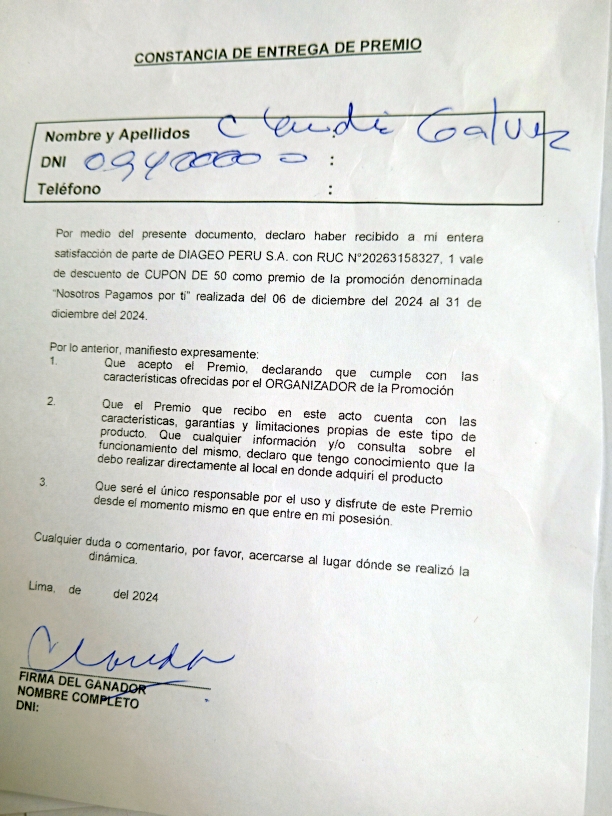 CONSTANCIA DE ENTREGA DE PREMIO
Nombre y Apellidos : Claudia Galvez
DNI :
Teléfono :
Por medio del presente documento, declaro haber recibido a mi entera
satisfacción de parte de DIAGEO PERU S.A. con RUC N°20263158327, 1 vale
de descuento de CUPON DE 50 como premio de la promoción denominada
"Nosotros Pagamos por ti" realizada del 06 de diciembre del 2024 al 31 de
diciembre del 2024.
Por lo anterior, manifiesto expresamente:
1. Que acepto el Premio, declarando que cumple con las
características ofrecidas por el ORGANIZADOR de la Promoción
2. Que el Premio que recibo en este acto cuenta con las
características, garantías y limitaciones propias de este tipo de
producto. Que cualquier información y/o consulta sobre el
funcionamiento del mismo, declaro que tengo conocimiento que la
debo realizar directamente al local en donde adquirí el producto
3. Que seré el único responsable por el uso y disfrute de este Premio
desde el momento mismo en que entre en mi posesión.
Cualquier duda o comentario, por favor, acercarse al lugar dónde se realizó la
dinámica.
Lima, de del 2024
FIRMA DEL GANADOR
NOMBRE COMPLETO
DNI: